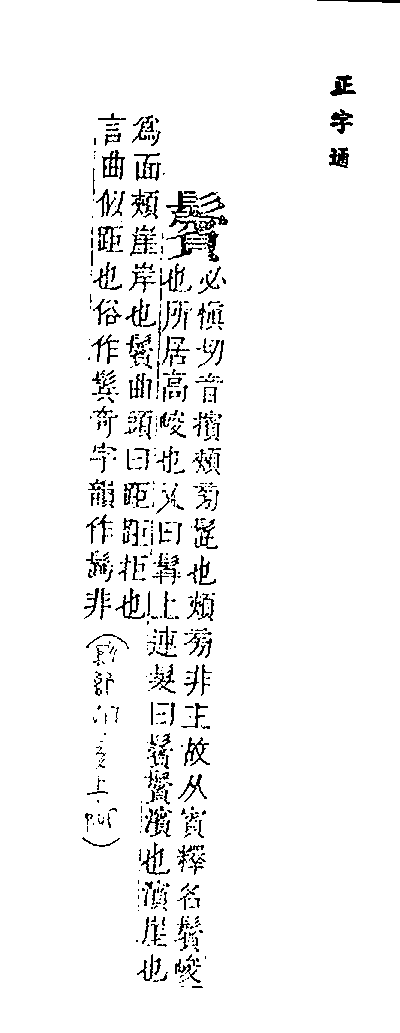 正字通
鬢
必愼切音擯頰旁髭也頰旁非主故从賓釋名鬢峻
也所居高峻也又曰上連髮曰鬢鬢濱也濱崖也
爲面頰崖岸也鬢曲頭曰距距拒也
言曲似距也俗作鬂奇字韻作髩非